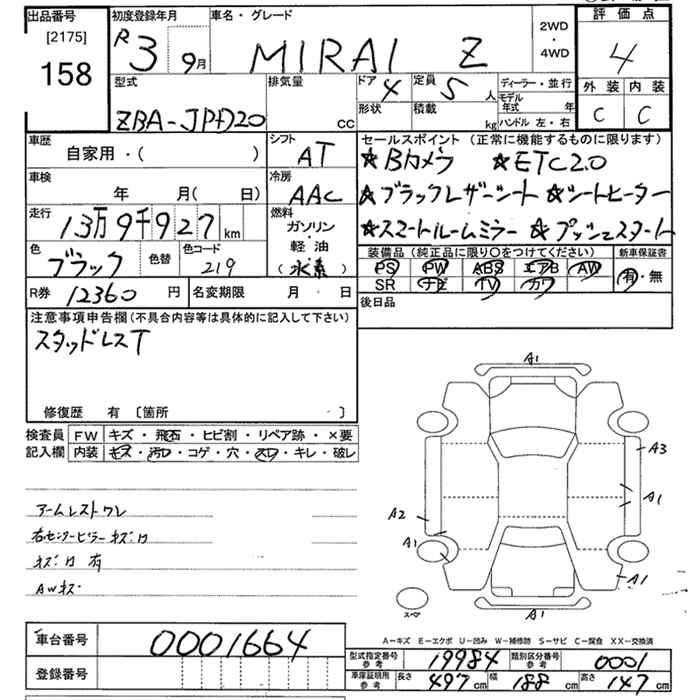 出品番号
[2175]
158
初度登録年月
R3 9月
車名・グレード
MIRAI Z
2WD
・
4WD
評価点
4
外装 内装
C C
型式
ZBA-JPD20
排気量
CC
ドア 4
定員 5 人
形状
積載 kg
ディーラー・並行
モデル年式 年
ハンドル 左・右
車歴
自家用・( )
シフト
AT
車検
年 月( 日)
冷房
AAC
走行
13万9千927km
燃料
ガソリン
・
軽・油
(水素)
色
ブラック
色替
色コード
219
R券 12360 円
名変期限 月 日
セールスポイント (正常に機能するものに限ります)
★Bカメラ ★ETC2.0
★ブラックレザーシート ★シートヒーター
★スマートルームミラー ★プッシュスタート
装備品 (純正品に限り○をつけてください)
PS PW ABS エアB AW
SR ナビ TV カワ
新車保証書
有・無
後日品
注意事項申告欄 (不具合内容等は具体的に記入して下さい)
スタッドレスT
修復歴 有 〔箇所 〕
検査員
記入欄
FW キズ・飛石・ヒビ割・リペア跡・×要
内装 キズ・汚れ・コゲ・穴・スレ・キレ・破レ
アームレストワレ
右センターピラーキズ
有
AWキズ
A1
A3
A1
A2
A1
A1
スペア
A1
A-キズ E-エクボ U-凹み W-補修跡 S-サビ C-腐食 XX-交換済
車台番号
0001664
登録番号
型式指定番号
参考
19984
類別区分番号
参考
0001
車庫証明用
参考
長さ 497cm 幅 188cm 高さ 147cm